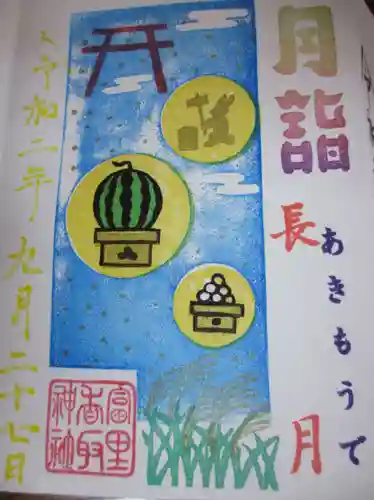 月詣
長月
あきもうで
令和二年九月二十七日
富里
香取
神社